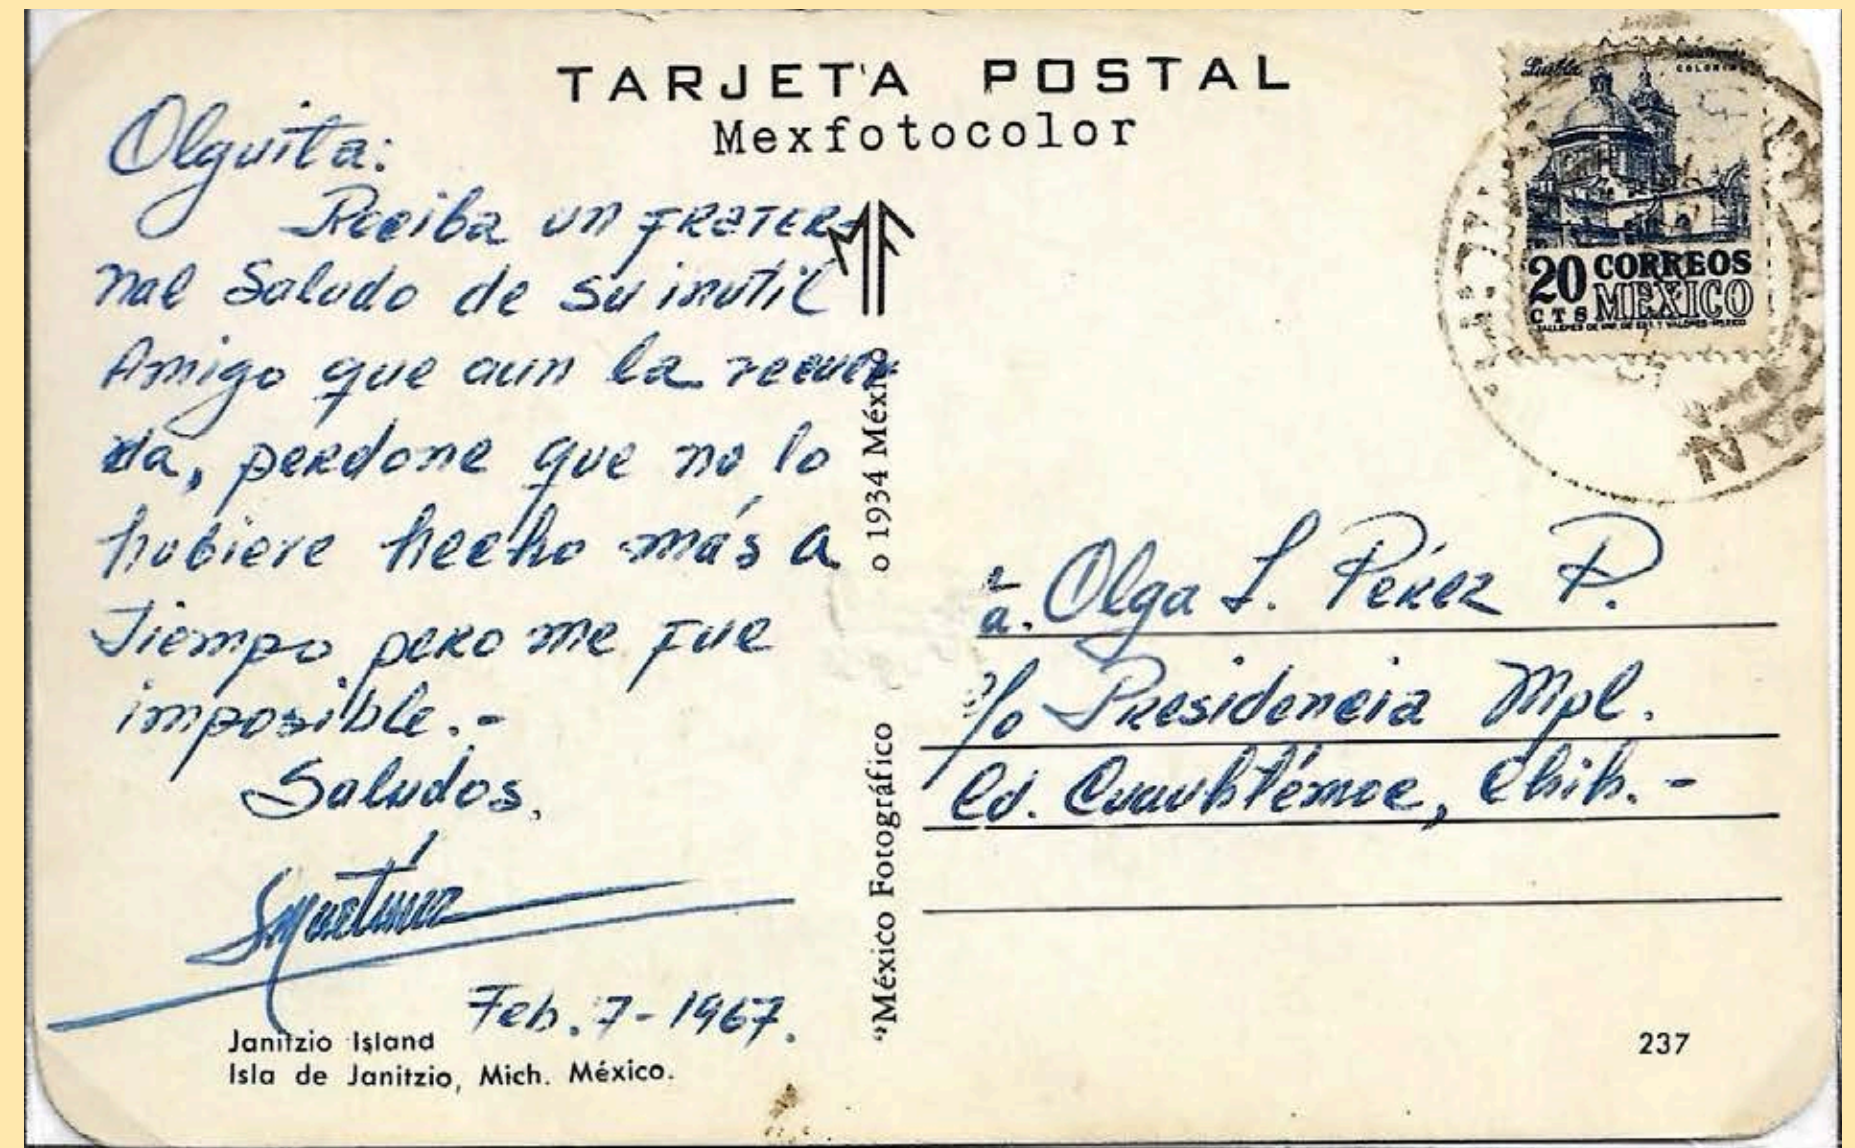 TARJETA POSTAL
Mexfotocolor
Olguita:
Reciba un frater-
nal Saludo de su inutil
Amigo que aun la recuer-
da, perdone que no lo
hubiere hecho más a
Tiempo pero me fue
imposible.-
Saludos,
Feb. 7-1967.
Janitzio Island
Isla de Janitzio, Mich. México.
"México Fotográfico
o 1934 México
Puebla
COLONIAL
20 CORREOS
CTS MEXICO
TALLERES DE IMP. DE EST. Y VALORES-MEXICO
a. Olga L. Pérez P.
c/o Presidencia Mpl.
Cd. Cuauhtémoc, Chih.-
237